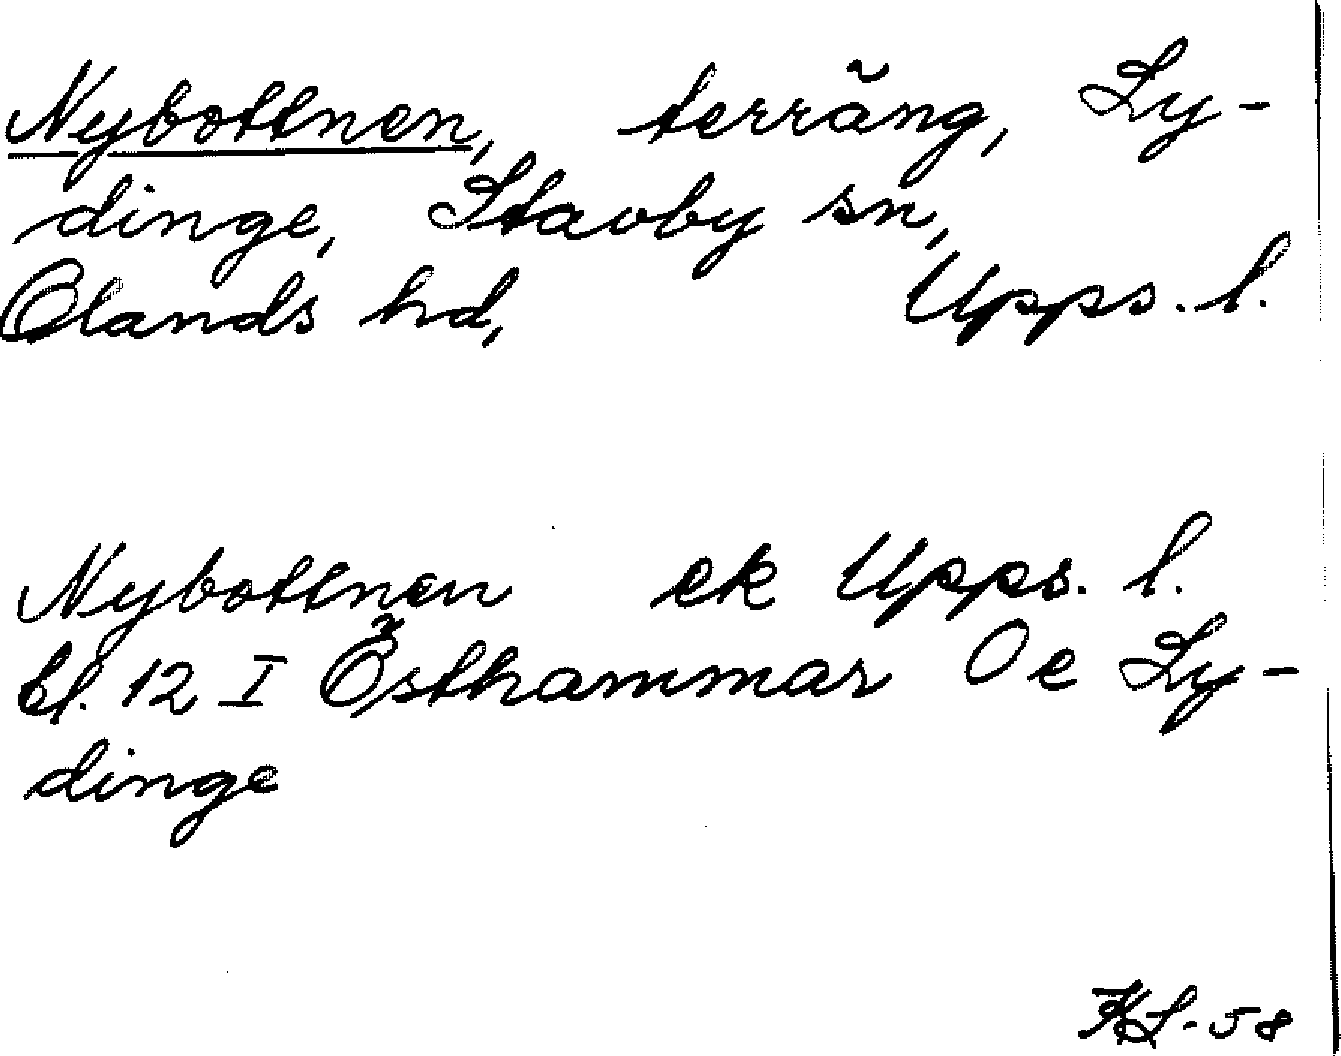 Nybottnen, terräng, Ly-
dinge, Stavby sn,
Olands hd, Upps. l.
Nybottnen ek Upps. l.
bl. 12 I Östhammar Oe Ly-
dinge
KL-58